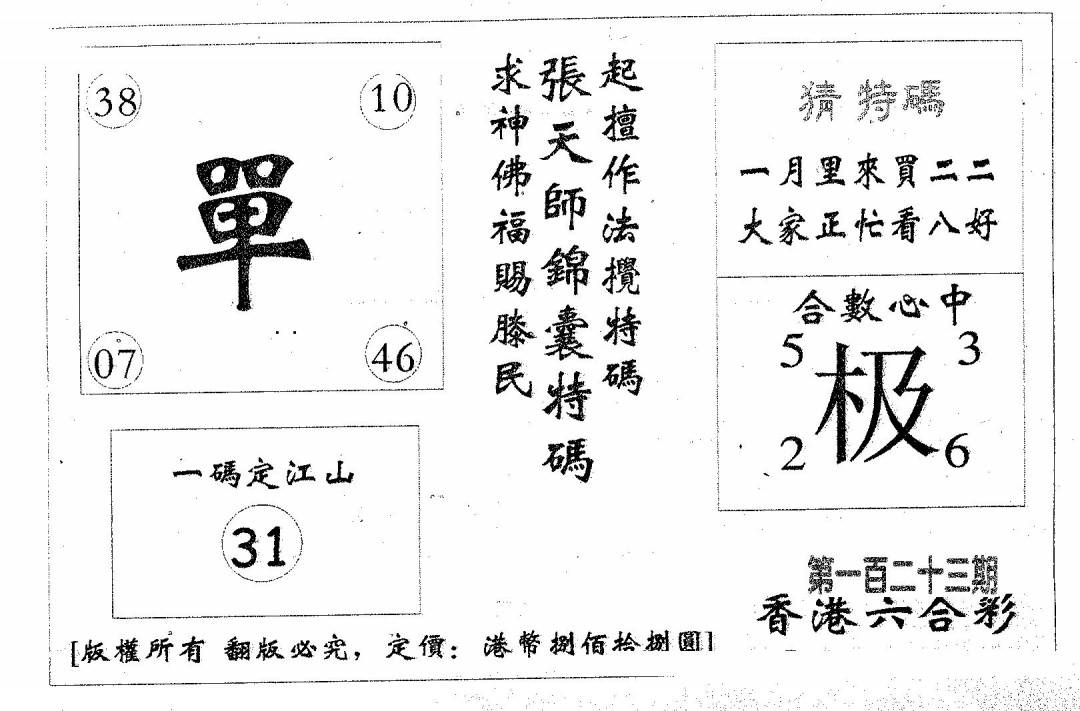 38 10
單
07 46
一碼定江山
31
起擅作法攪特碼
張天師錦囊特碼
求神佛福賜滕民
猜特碼
一月里來買二二
大家正忙看八好
合數心中
5 3
极
2 6
第一百二十三期
香港六合彩
[版權所有 翻版必究，定價：港幣捌佰拾捌圓]